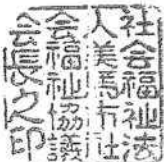 社会福祉法
人美馬市社
会福祉協議
会長之印